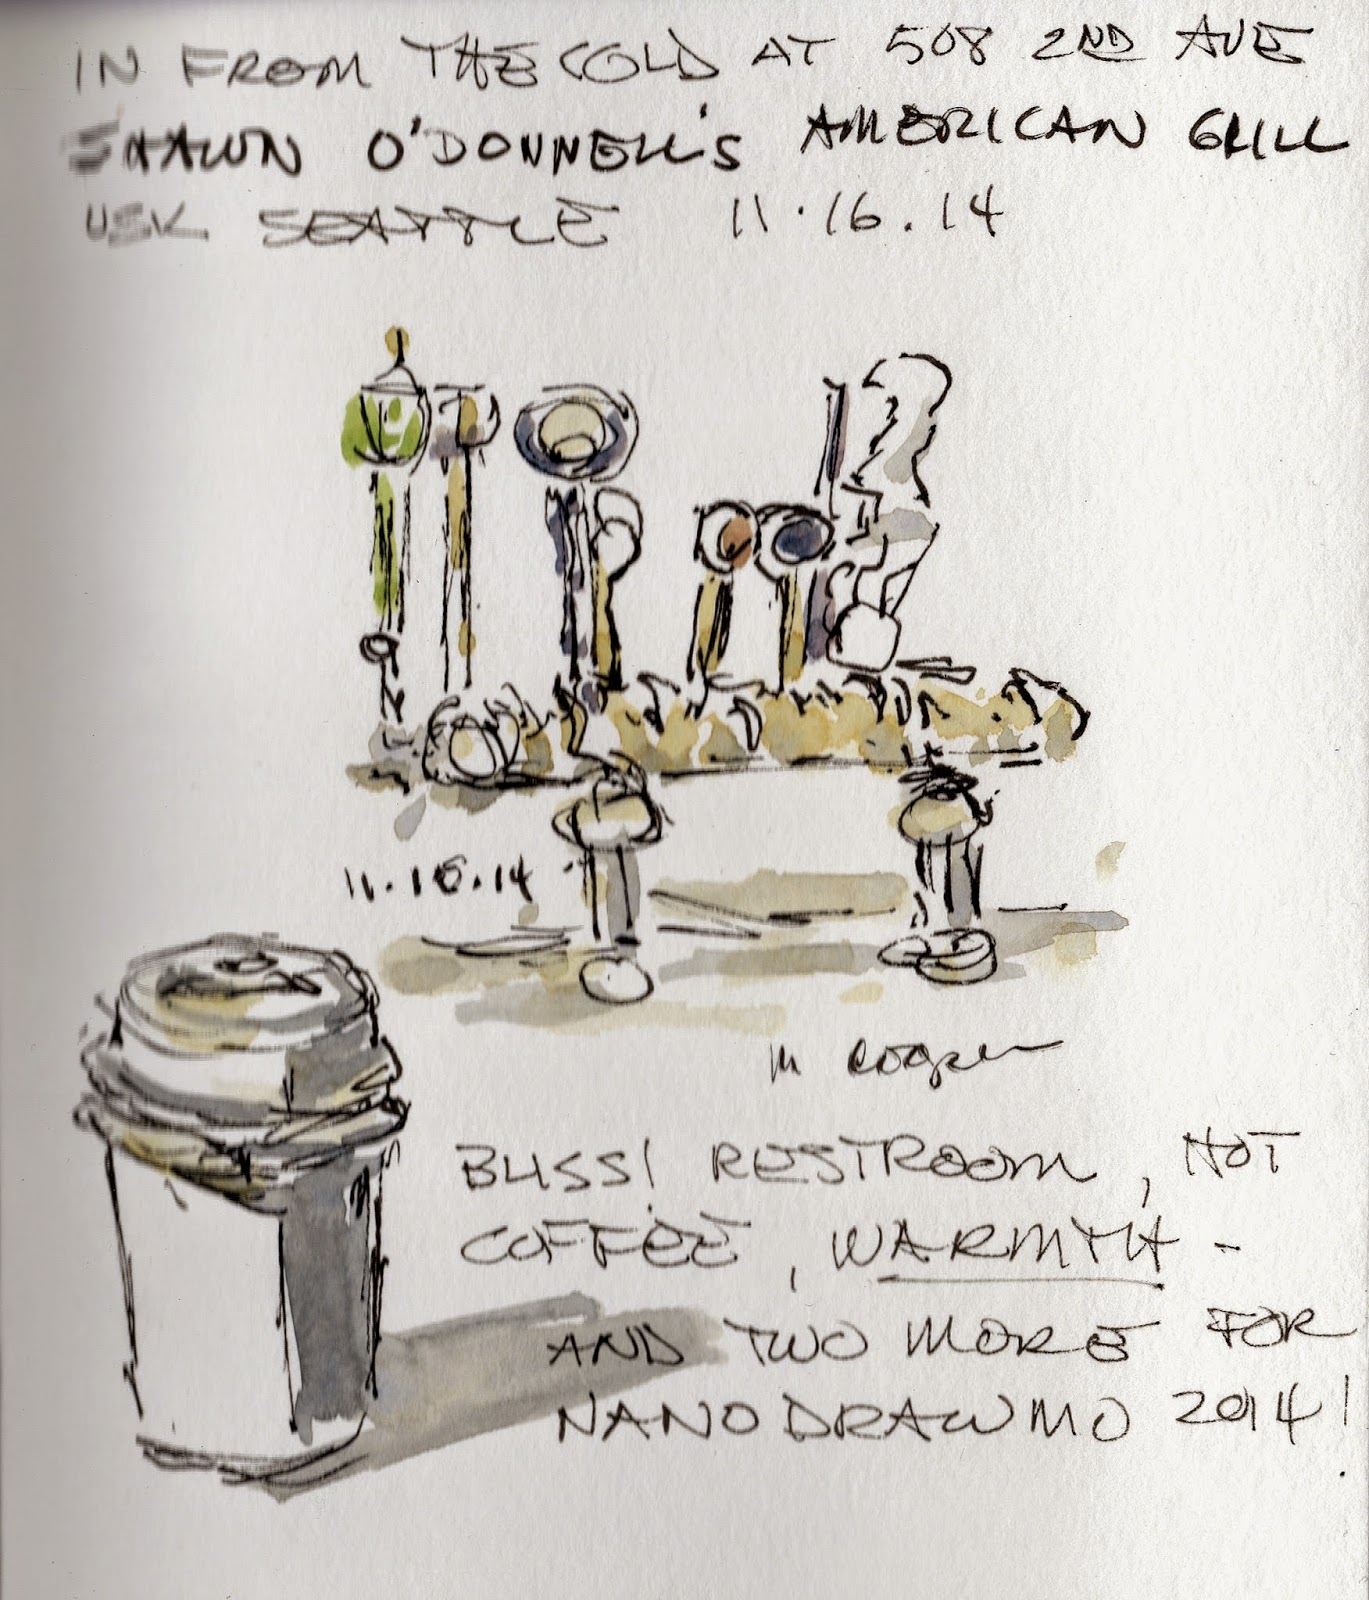 IN FROM THE COLD AT 508 2ND AVE
SHAWN O'DONNELL'S AMERICAN GRILL
USK SEATTLE 11.16.14
11.16.14
BLISS! RESTROOM, HOT
COFFEE, WARMTH -
AND TWO MORE FOR
NANODRAWMO 2014!